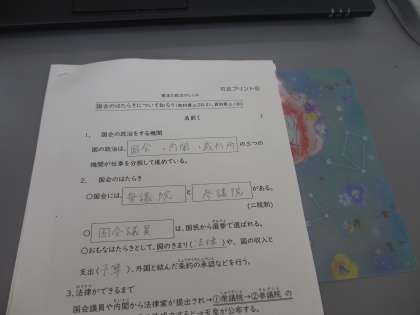 社会プリント⑥
憲法と政治のしくみ
国会のはたらきについて知ろう
名前(　　　　)
1.　国会の政治をする機関
国の政治は、国会・内閣・裁判所の三つの
機関が仕事を分担して進めている。
2.　国会のはたらき
○国会には、衆議院と参議院がある。
(二院制)
○国会議員は、国民から選挙で選ばれる。
○おもなはたらきとして、国のきまり(法律)や、国の収入と
支出(予算)、外国と結んだ条約の承認などを行う。
3.法律ができるまで
国会議員や内閣から法律案が提出され→①衆議院→②参議院の
すると→天皇が公布する。